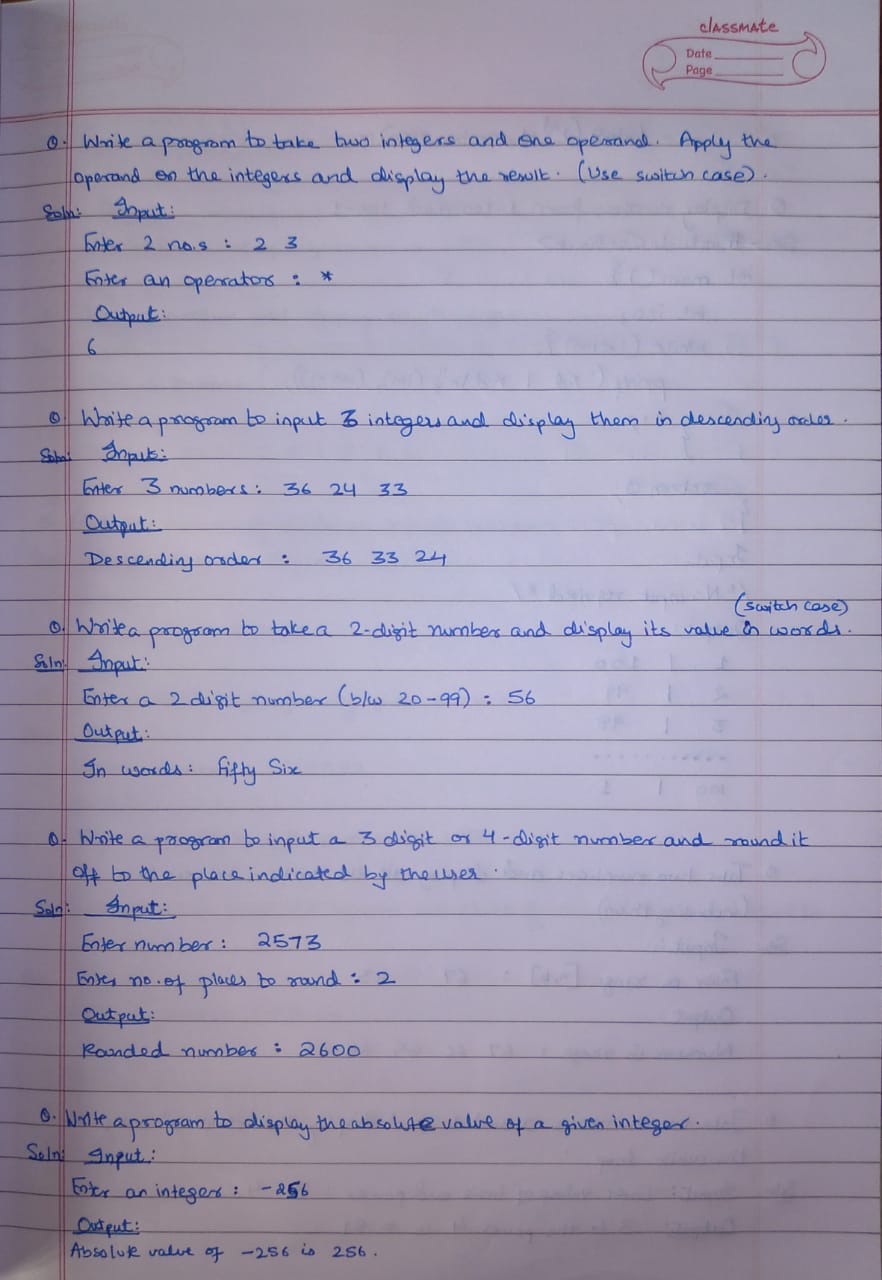 classmate
Date
Page
Q. Write a program to take two integers and one operand. Apply the
operand on the integers and display the result. (Use switch case).
Soln: Input:
Enter 2 no.s : 2 3
Enter an operator : *
Output:
6
Q. Write a program to input 3 integers and display them in descending order.
Soln: Input:
Enter 3 numbers: 36 24 33
Output:
Descending order : 36 33 24
(switch case)
Q. Write a program to take a 2-digit number and display its value in words.
Soln: Input:
Enter a 2 digit number (b/w 20-99) : 56
Output:
In words: Fifty Six
Q. Write a program to input a 3 digit or 4-digit number and round it
off to the place indicated by the user.
Soln: Input:
Enter number : 2573
Enter no. of places to round : 2
Output:
Rounded number : 2600
Q. Write a program to display the absolute value of a given integer.
Soln: Input:
Enter an integer : -256
Output:
Absolute value of -256 is 256.